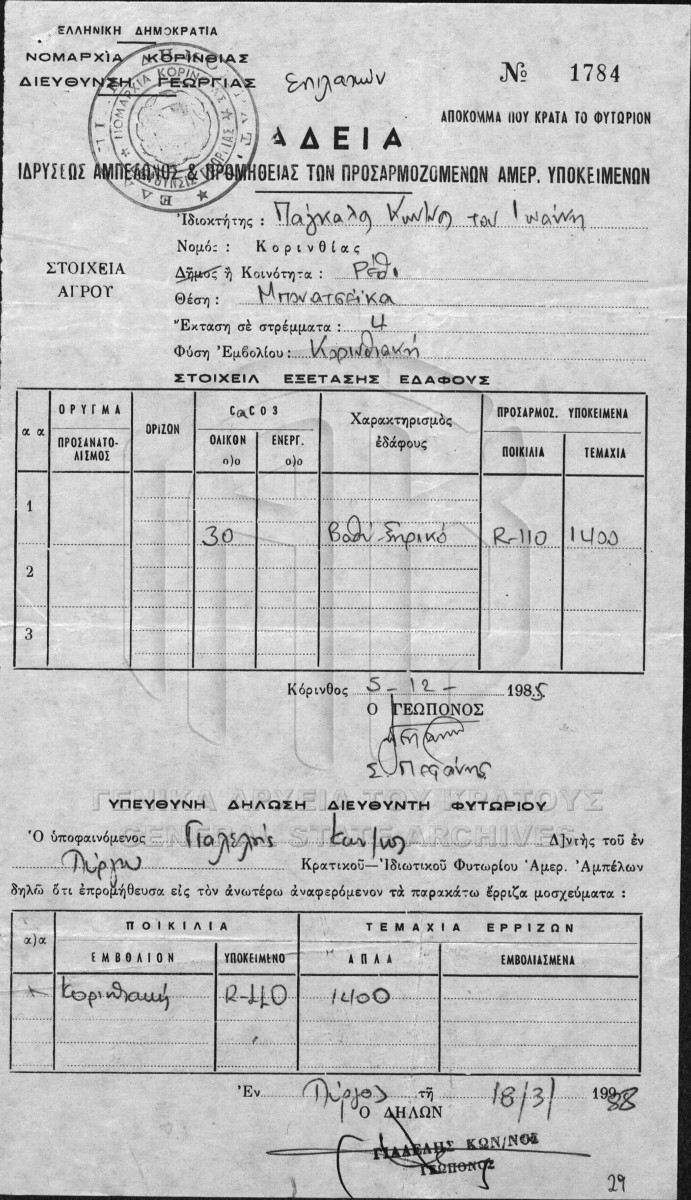 ΕΛΛΗΝΙΚΗ ΔΗΜΟΚΡΑΤΙΑ
ΝΟΜΑΡΧΙΑ ΚΟΡΙΝΘΙΑΣ
ΔΙΕΥΘΥΝΣΗ ΓΕΩΡΓΙΑΣ
Νο 1784
ΑΠΟΚΟΜΜΑ ΠΟΥ ΚΡΑΤΑ ΤΟ ΦΥΤΩΡΙΟΝ
ΑΔΕΙΑ
ΙΔΡΥΣΕΩΣ ΑΜΠΕΛΩΝΟΣ & ΠΡΟΜΗΘΕΙΑΣ ΤΩΝ ΠΡΟΣΑΡΜΟΖΟΜΕΝΩΝ ΑΜΕΡ. ΥΠΟΚΕΙΜΕΝΩΝ
ΣΤΟΙΧΕΙΑ ΑΓΡΟΥ
Ἰδιοκτήτης : Παγκαλο Κων/νο του Ιωάννη
Νομός : Κορινθίας
Δῆμος ἤ Κοινότητα : Ρέθι
Θέση : Μπονατσέικα
Ἔκταση σὲ στρέμματα : 4
Φύση Ἐμβολίου : Κορινθιακή
ΣΤΟΙΧΕΙΛ ΕΞΕΤΑΣΗΣ ΕΔΑΦΟΥΣ
α α ΟΡΥΓΜΑ ΠΡΟΣΑΝΑΤΟΛΙΣΜΟΣ ΟΡΙΖΩΝ CaCO3 Χαρακτηρισμὸς ἐδάφους ΠΡΟΣΑΡΜΟΖ. ΥΠΟΚΕΙΜΕΝΑ
ΟΛΙΚΟΝ ο)ο ΕΝΕΡΓ. ο)ο ΠΟΙΚΙΛΙΑ ΤΕΜΑΧΙΑ
1
30 Βαθύ ξηρικό R-110 1400
2
3
Κόρινθος 5-12- 1985
Ο ΓΕΩΠΟΝΟΣ
ΓΕΝΙΚΑ ΑΡΧΕΙΑ ΤΟΥ ΚΡΑΤΟΥΣ
ΥΠΕΥΘΥΝΗ ΔΗΛΩΣΗ ΔΙΕΥΘΥΝΤΗ ΦΥΤΩΡΙΟΥ
GENERAL STATE ARCHIVES
Ὁ ὑποφαινόμενος Γιαλελής Κων/νος Δ)ντὴς τοῦ ἐν
Πύργου Κρατικοῦ—Ἰδιωτικοῦ Φυτωρίου Ἀμερ. Ἀμπέλων
δηλῶ ὅτι ἐπρομήθευσα εἰς τὸν ἀνωτέρω ἀναφερόμενον τὰ παρακάτω ἔρριζα μοσχεύματα :
α)α ΠΟΙΚΙΛΙΑ ΤΕΜΑΧΙΑ ΕΡΡΙΖΩΝ
ΕΜΒΟΛΙΟΝ ΥΠΟΚΕΙΜΕΝΟ ΑΠΛΑ ΕΜΒΟΛΙΑΣΜΕΝΑ
Κορινθιακή R-110 1400
Ἐν Πύργος τῇ 18/3/ 1988
Ο ΔΗΛΩΝ
ΓΙΑΛΕΛΗΣ ΚΩΝ/ΝΟΣ
ΓΕΩΠΟΝΟΣ
29